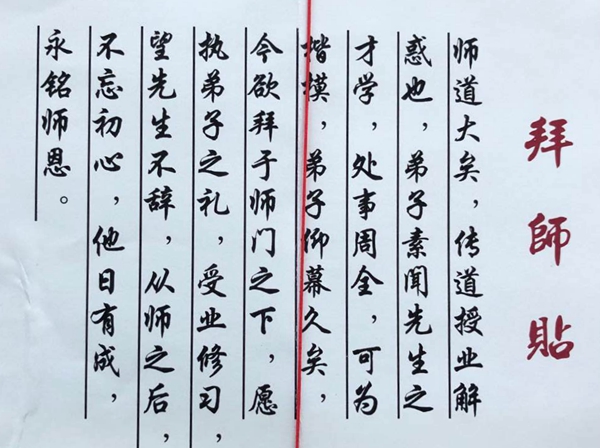 拜師貼
师道大矣，传道授业解
惑也，弟子素闻先生之
才学，处事周全，可为
楷模，弟子仰幕久矣，
今欲拜于师门之下，愿
执弟子之礼，受业修习，
望先生不辞，从师之后，
不忘初心，他日有成，
永铭师恩。